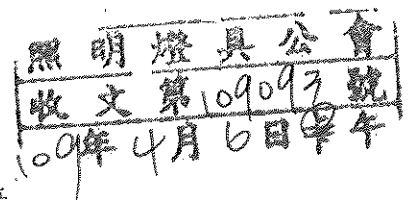 照明燈具公會
收文第109093號
109年4月6日午